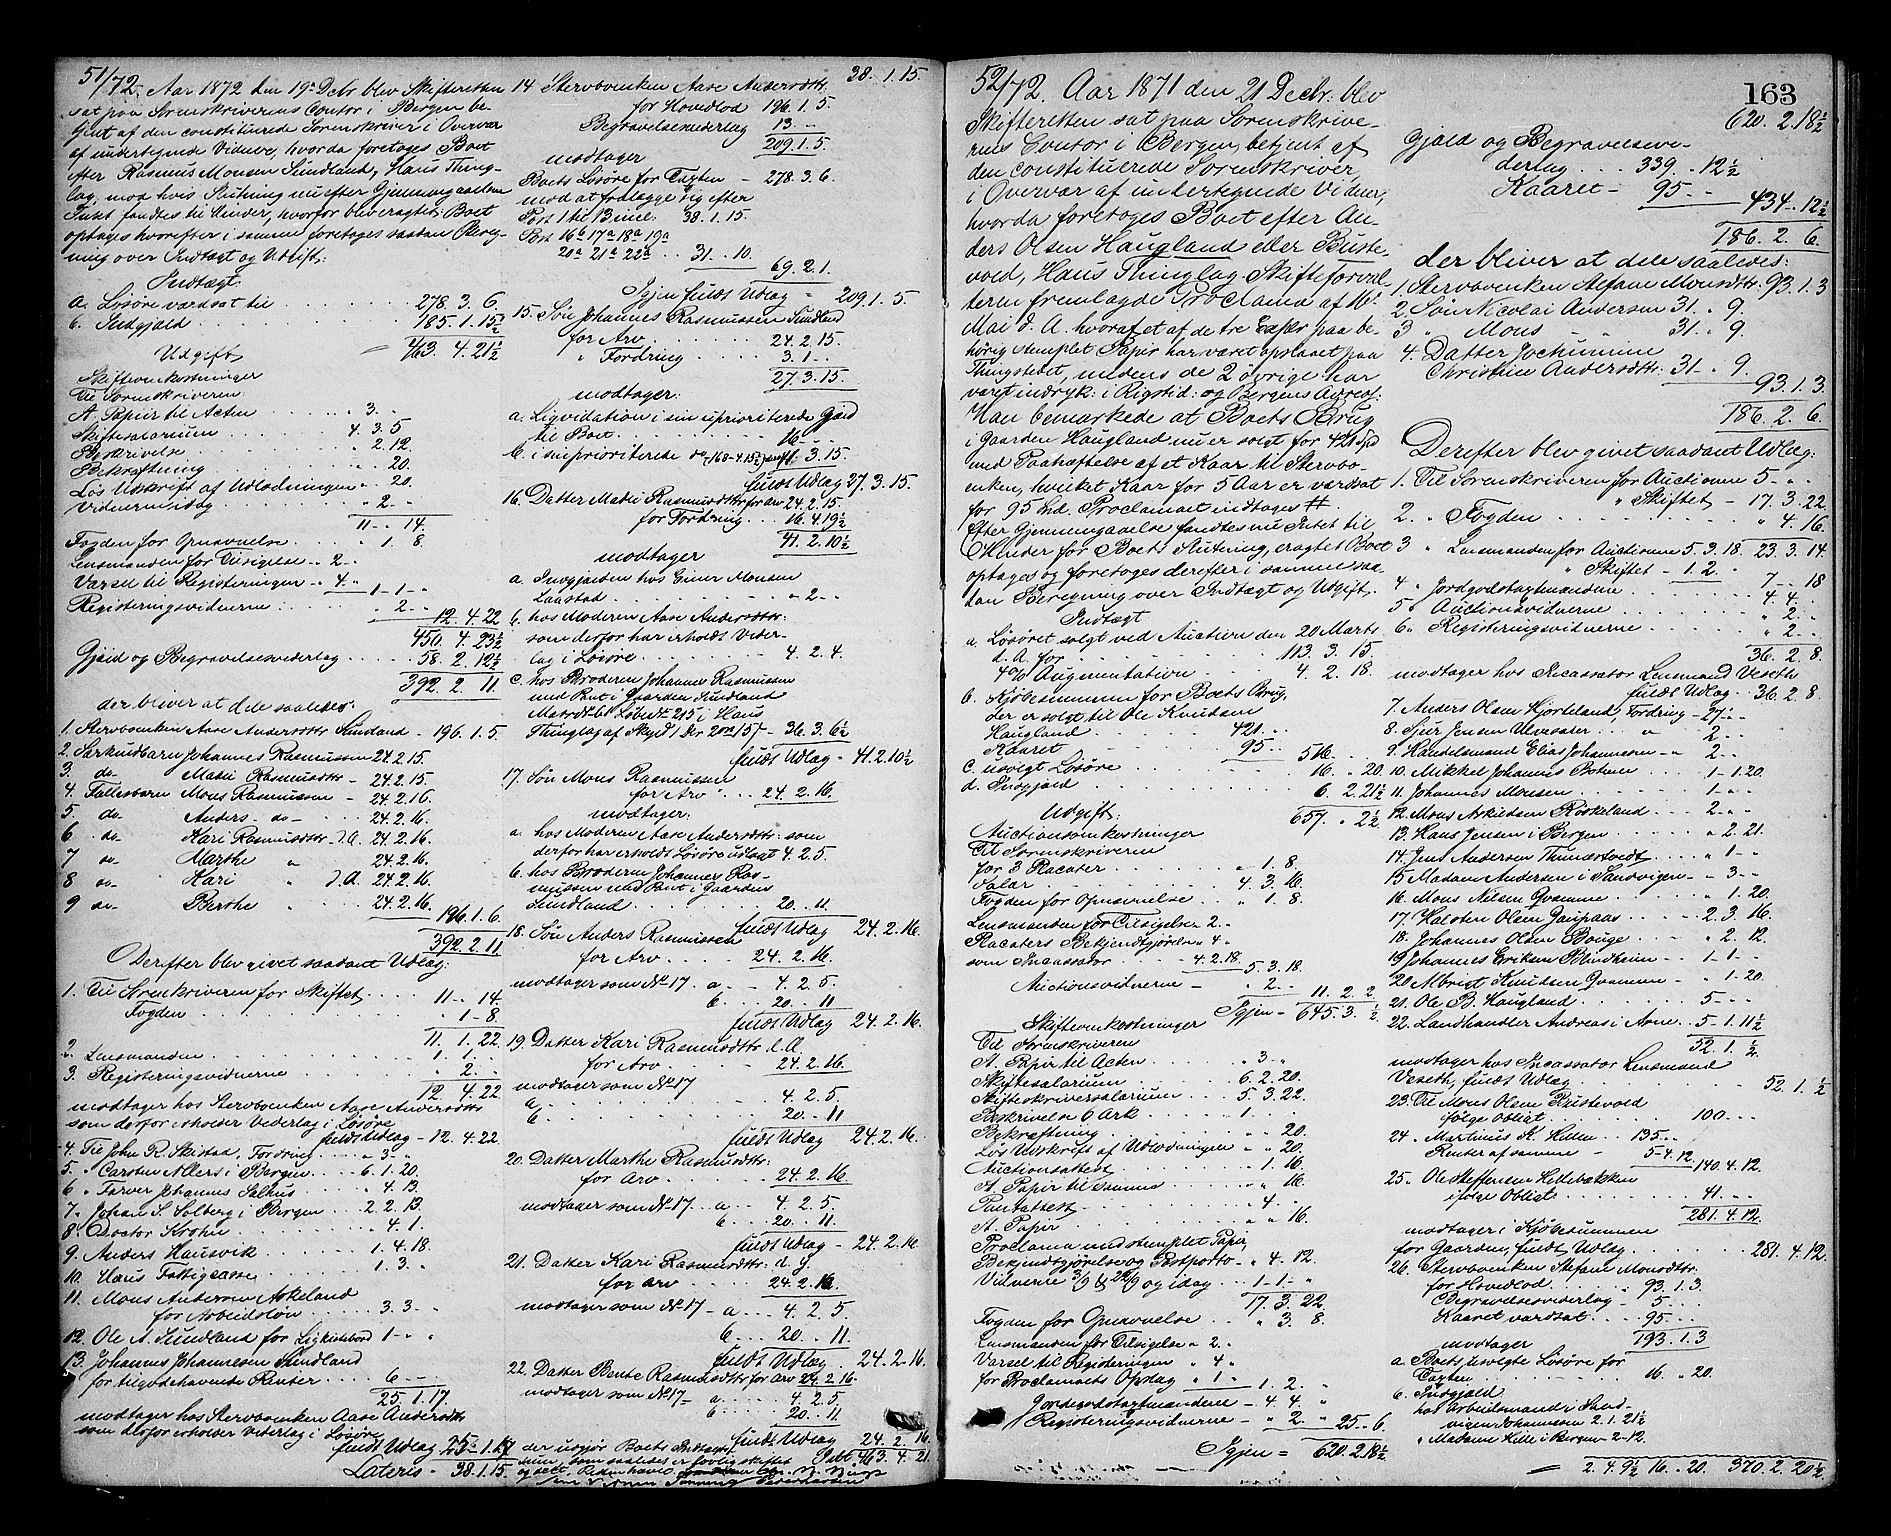 51/72. Aar 1872 den 19 Debr blev Skifteretten
sat paa Sorenskriverens Contor i Bergen be-
tjent af den constituerede Sorenskriver i Overvær
af undertegnede Vidner, hvorda foretoges Boet
efter Rasmus Monsen Sundland, Haus Thing-
lag, mod hvis Slutning nu efter Gjennemgaaelsen
Intet fandtes til Hinder, hvorfor blev eragtet: Boet
optages hvorefter i samme foretoges saadan Bereg-
ning over Indtægt og Udgift:
Indtægt
a. Løsøre værdsat til 278. 3. 6.
b. Indgjæld 185. 1. 15½
463. 4. 21½
Udgift
Skifteomkostninger
Til Sorenskriveren
St. Papir til Acten " 3. "
Skiftesalarium 4. 3. 5
Beskrivelse " 2. 12.
Bekræftning " " 20.
Løs Udskrift af Udlodningen " " 20.
Vidnerne idag " 2 - "
11 - " 14.
Fogden for Opnævnelse " 1. 8
Lensmanden for Tilsigelse " 2 - "
Varsel til Registeringen " 4. "
1 - 1 - "
Registeringsvidnerne " 2 - "
12. 4. 22
450. 4. 23½
Gjæld og Begravelsesvederlag 58. 2. 12½
392. 2. 11
der bliver at dele saaledes:
1. Stervboenken Aase Andersdttr Sundland - 196. 1. 5
2. Særkuldbarn Johannes Rasmussen 24. 2. 15.
3. do Madii Rasmusdttr - 24. 2. 15
4. Fællesbarn Mons Rasmussen - 24. 2. 16
5. do Anders - do - 24. 2. 16.
6 do Kari Rasmusdttr d. Æ. 24. 2. 16
7 do Marthe " 24. 2. 16.
8 do Kari " 24. 2. 16.
9 do Berthe " 24. 2. 16.
196. 1. 6
392. 2. 11
Derefter blev givet saadant Udlæg:
1. Til Sorenskriveren for Skiftet 11 - " 14.
Fogden " 1 - 8
11. 1. 22
2. Lensmanden 1. 1. "
3. Registeringsvidnerne " 2. "
12 4. 22
modtager hos Stervboenken Aase Andersdttr
som derfor erholder Vederlag i Løsøre
fuldt Udlæg - 12. 4. 22.
4. Til John R. Skistad, Fordring " 3 "
5. " Carsten Allers i Bergen 6. 1. 20.
6 " Farver Johannes Salhus " 4. 13.
7 " Johan S. Solberg i Bergen 2. 2. 13.
8. Doctor Krohn " 4. 1.
9. Anders Hausvik 1. 4. 18.
10. Haus Fattigcasse 1. 3. "
11. Mons Andersen Askeland
for Arbeidsløn 3. 3. "
12. Ole A. Sundland for Ligkistebord 1 - "
13. Johannes Johannesen Sundland
for tilgodehavende Renter 6 - "
25. 1. 17
modtager hos Stervboenken Aase Andersdttr
som derfor erholder Vederlag i Løsøre
fuldt Udlæg 25 - 1. 17
Lateris - 38. 1. 15.
38. 1. 15
14 Stervboenken Aase Andersdttr
for Hovedlod 196. 1. 5.
Begravelsesvederlag 13 -
209. 1. 5.
modtager
Boets Løsøre for Taxten - 278. 3. 6.
mod at fralægge sig efter
Post 1 til 13 incl. 38. 1. 15.
Post 16b 17a 18a 19a
20a 21a 22a 31. " 10.
69. 2. 1.
Igjen fuldt Udlæg - 209. 1. 5.
15. Søn Johannes Rasmussen Sundland
for Arv 24. 2. 15.
" Fordring 3. 1 -
27. 3. 15.
modtager:
a. Liqvidation i sin uprioriterede Gjæld
til Boet 16 - "
b. i sin prioriterede do 11. 3. 15.
fuldt Udlæg 27. 3. 15.
16. Datter Madii Rasmusdttr for Arv 24. 2. 15.
for Fordring 16. 4. 19½
41. 2. 10½
modtager
a. Indgjælden hos Einer Monsen
Laastad " 2 - "
b. hos Moderen Aase Andersdttr:
som derfor har erholdt Veder-
lag i Løsøre 4. 2. 4.
c. hos Broderen Johannes Rasmussen
med Pant i Gaarden Sundland
Matr. № 61 Løbe № 215 i Haus
Thinglag af Skyld 1 Dlr 2 Ort 15 β - 36. 3. 6½
fuldt Udlæg - 41. 2. 10½
17. Søn Mons Rasmussen
for Arv 24. 2. 16.
modtager:
a. hos Moderen Aase Andersdttr: som
derfor har erholdt Løsøre udlagt 4. 2. 5.
b. hos Broderen Johannes Ras-
mussen med Pant i Gaarden
Sundland 20. " 11
fuldt Udlæg 24. 2. 16.
18. Søn Anders Rasmussen
for Arv 24. 2. 16.
modtager som № 17. a 4. 2. 5
b 20. " 11
fuldt Udlæg 24. 2. 16.
19. Datter Kari Rasmusdttr d. Æ.
for Arv 24. 2. 16.
modtager som № 17
a 4. 2. 5.
b 20. " 11
fuldt Udlæg 24. 2. 16.
20. Datter Marthe Rasmusdttr:
for Arv 24. 2. 16.
modtager som № 17 a 4. 2. 5.
b 20. " 11
fuldt Udlæg - 24. 2. 16.
21. Datter Kari Rasmusdttr: d. y.
for Arv 24. 2. 16.
modtager som № 17 - a 4. 2. 5.
b 20. " 11.
fuldt Udlæg. 24. 2. 16.
22. Datter Bente Rasmusdttr for Arv 24. 2. 16.
modtager som № 17 - a 4. 2. 5.
b 20. " 11
fuldt Udlæg 24. 2. 16
der udgjør Boets Indtægt 463. 4. 21
som saaledes er lovlig skiftet
og delt.
163
52/72. Aar 1871 den 21 Decbr: blev
Skifteretten sat paa Sorenskrive-
rens Contor i Bergen, betjent af
den constituerede Sorenskriver,
i Overvær af undertegnede Vidner,
hvorda foretoges Boet efter An-
ders Olsen Haugland eller Buste-
vold, Haus Thinglag. Skifteforval-
teren fremlagde Proclama af 16
Mai d. A. hvoraf et af de tre Explr paa be-
hørig stemplet Papir har været opslaaet paa
Thingstedet, medens de 2 øvrige har
været indryk: i Rigstid: og Bergens Adresf:
Han bemærkede at Boets Brug
i Gaarden Haugland nu er solgt for 421 Spd
med Paaheftelse af et Kaar til Stervbo-
enken, hvilket Kaar for 5 Aar er værdsat
for 95 Spd. Proclamaet indtages #.
Efter Gjennemgaaelse fandtes nu Intet til
Hinder for Boets Slutning, eragtet Boet
optages og foretoges derefter i samme saa-
dan Beregning over Indtægt og Udgift.
Indtægt
a Løsøret solgt ved Auction den 20 Marts
d. A. for 113. 3. 15
4% Augmentation 4. 2. 18.
b. Kjøbesummen for Boets Brug,
der er solgt til Ole Knudsen
Haugland 421. "
Kaaret 95. "
516. "
c. usolgt Løsøre 16. " 20.
d. Indgjæld 6. 2. 21½
657. " 2½
Udgift:
Auctionsomkostninger
Til Sorenskriveren
for 3 Placater " 1. 8
Salær 4. 3. 16.
Fogden for Opnævnelse " 1. 8.
Lensmanden for Tilsigelse " 2. "
Placaters Bekjendtgjørelse " 4 "
som Incassator 4. 2. 18.
5. 3. 18.
Auctionsvidnerne " 2. "
11. 2. 2
Igjen - 645. 3. ½
Skifteomkostninger
Til Sorenskriveren
St. Papir til Acten " 3 "
Skiftesalarium 6. 2. 20.
Skifteskriversalarium 5. 3. 22.
Beskrivelse 6 Ark 1. "
Bekræftning " " 20.
Løs Udskrift af Udlodningen " " 20.
Auctionsattest " 1. 16.
St. Papir til samme " " 16.
Panteattest " 4. "
St. Papir " " 16.
Proclama med stemplet Papir,
Bekjendtgjørelse og Postporto " 4. 12.
Vidnerne 3/9 & 22/9 og idag 1 - 1 - "
17. 3. 22
Fogden for Opnævnelse " 3. 8.
Lensmanden for Tilsigelse " 2. "
Varsel til Registeringen " 4 "
for Proclamaets Opslag " 1 "
1. 2. "
Jordegodstaxtmændene - 4. 4. "
Registeringsvidnerne - " 2. "
25. " 6.
Igjen = 620. 2. 18½
620. 2. 18½
Gjæld og Begravelsesve-
derlag 339. " 12½
Kaaret - 95 -
434 - " 12½
186. 2. 6.
der bliver at dele saaledes:
1. Stervboenken Stefani Monsdttr: 93. 1. 3
2. Søn Nicolai Andersen 31. " 9.
3 " Mons " 31. " 9.
4. Datter Jochumine
Christine Andersdttr: 31 - " 9.
93. 1. 3.
186. 2. 6
Derefter blev givet saadant Udlæg:
1. Til Sorenskriveren for Auctionen 5 - "
" Skiftet - 17. 3. 22.
2. " Fogden " 4. 16.
3 " Lensmanden for Auctionen 5. 3. 18. 23. 3. 14
" Skiftet - 1. 2. "
7 - " 18
4 " Jordgodstaxtmændene 4. 4. "
5 " Auctionsvidnerne " 2. "
6 " Registeringsvidnerne " 2. "
36. 2. 8.
modtager hos Incassator Lensmand Veseth
fuldt Udlæg 36. 2. 8.
7. Anders Olsen Hjorteland, Fordring - 27 - "
8. Sjur Jensen Ulvesæter " 2 - "
9. Handelsmand Elias Johannesen - " 2 - "
10. Mikkel Johannes Botnen 1 - 1. 20.
11. Johannes Monsen 1 - "
12. Mons Arkidsen Røskeland 2 - "
13. Hans Jensen i Bergen " 2. 21.
14. Jens Andersen Thunestvedt " 1 - "
15 Madam Andersen i Sandvigen - " 3 - "
16. Mons Nilsen Qvamme " 1. 20.
17 Halsten Olsen Gaupaas 2. 3. 16.
18. Johannes Olsen Bouge " 2. 12.
19 Johannes Eriksen Blindheim - 1 - 1 -
20 Albrigt Knudsen Qvamme " 1. 20
21. Ole B. Haugland 5 - "
22. Landhandler Andreas i Arne 5 - 1. 11½
52. 1. ½
modtager hos Incassator Lensmand
Veseth, fuldt Udlæg 52. 1. ½
23. Til Mons Olsen Bustevold
ifølge Obligt. 100. "
24 " Martinus K. Hillen 135. "
Renter af samme 5 - 4. 12
140. 4. 12.
25 " Ole Steffensen Hellebækken
ifølge Obligt: 41. "
281. 4. 12.
modtager i Kjøbesummen
for Gaarden, fuldt Udlæg 281. 4. 12.
26. Stervboenken Stefani Monsdttr:
for Hovedlod 93. 1. 3.
Begravelsesvederlag - 5. "
Kaaret værdsat 95. "
193. 1. 3
modtager
a. Boets usolgte Løsøre for
Taxten 16. " 20.
b. Indgjæld
hos Arbeidsmand i Sand-
vigen Johannesen 2. 1. 21½
" Madame Hille i Bergen " 2 - 12.
2. 4. 9½ 16. " 20. 370. 2. 20½